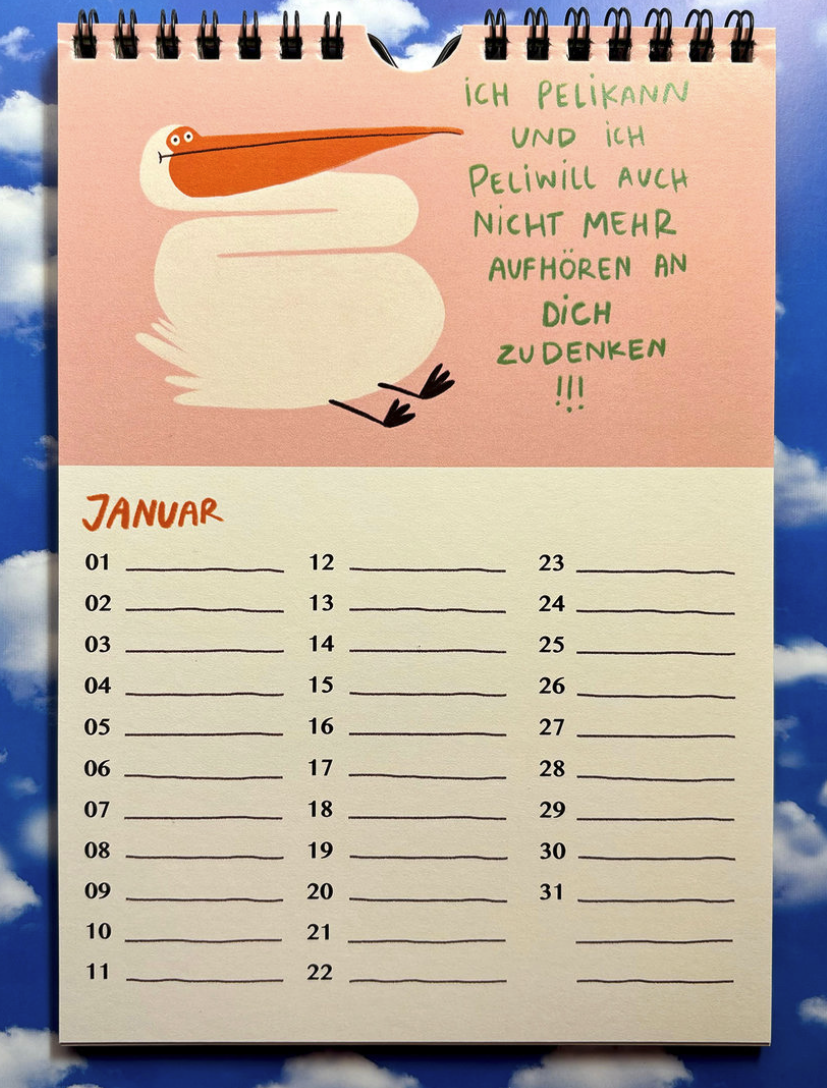 ICH PELIKANN
UND ICH
PELIWILL AUCH
NICHT MEHR
AUFHÖREN AN
DICH
ZU DENKEN
!!!
JANUAR
01 12 23
02 13 24
03 14 25
04 15 26
05 16 27
06 17 28
07 18 29
08 19 30
09 20 31
10 21
11 22